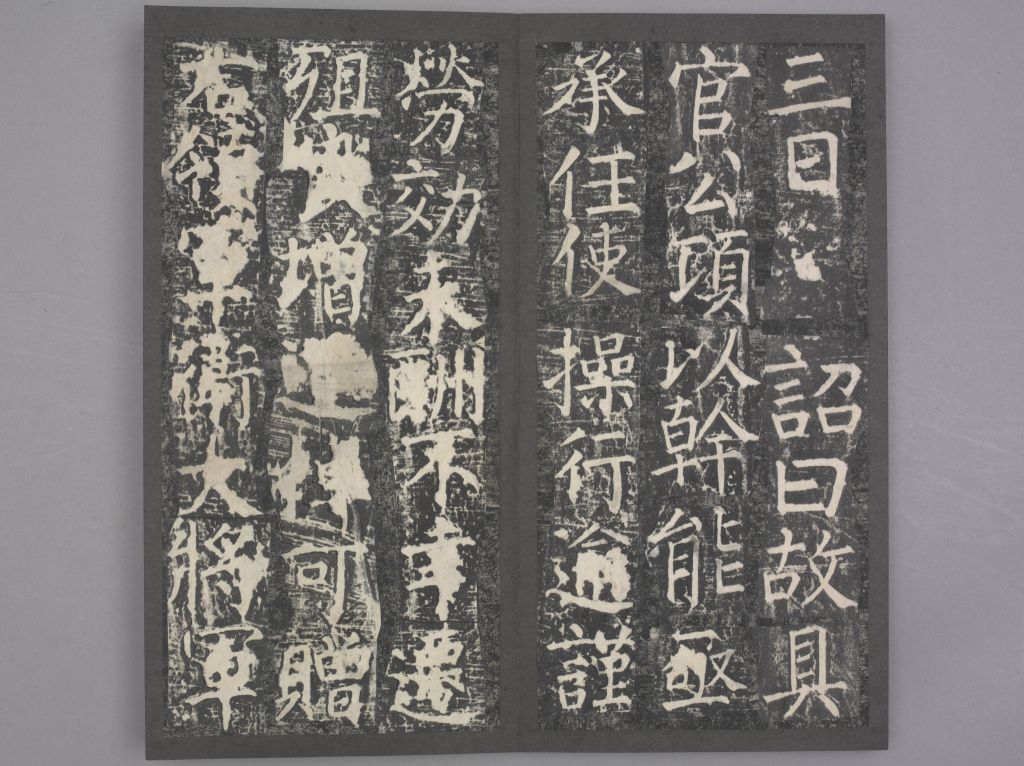 三日詔曰故具
官公頭以幹能亟
承任使操行逾謹
勞効未酬不幸遷
殂增可贈
右領軍衛大將軍